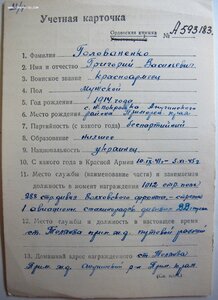 Учетная карточка
Орденская книжка
№ А 593183
1. Фамилия Голованенко
2. Имя и отчество Григорий Васильевич
3. Воинское звание красноармеец
4. Пол Мужской
5. Год рождения 1914 года
6. Место рождения с. Покровка
района Приморск. края
7. Партийность (с какого года) Беспартийный
8. Образование низшее
9. Национальность украинец
10. С какого года в Красной Армии
11. Место службы (наименование части) и занимаемая
должность в момент награждения 1013 стр. полк
288 стр. дивизии Волховского фронта
12. Место службы и должность в настоящее время
ст. прим. ж.д. путевой рабочий
13. Домашний адрес награжденного ст.
Прим. ж.д. р-н Прим. края